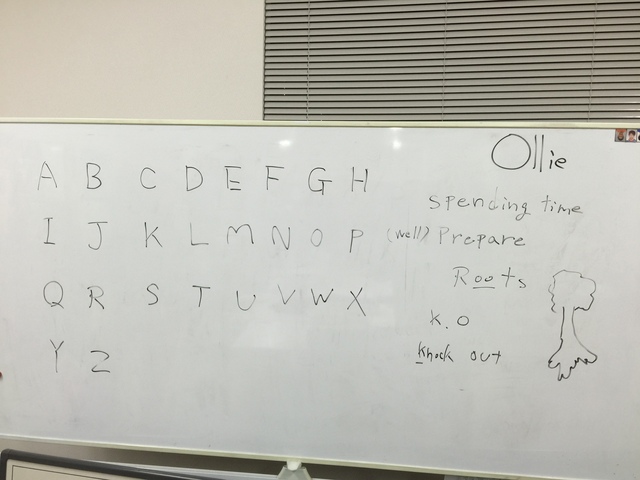 A B C D E F G H
I J K L M N O P
Q R S T U V W X
Y Z
Ollie
Spending time
(well) Prepare
Roots
K.O
Knock out